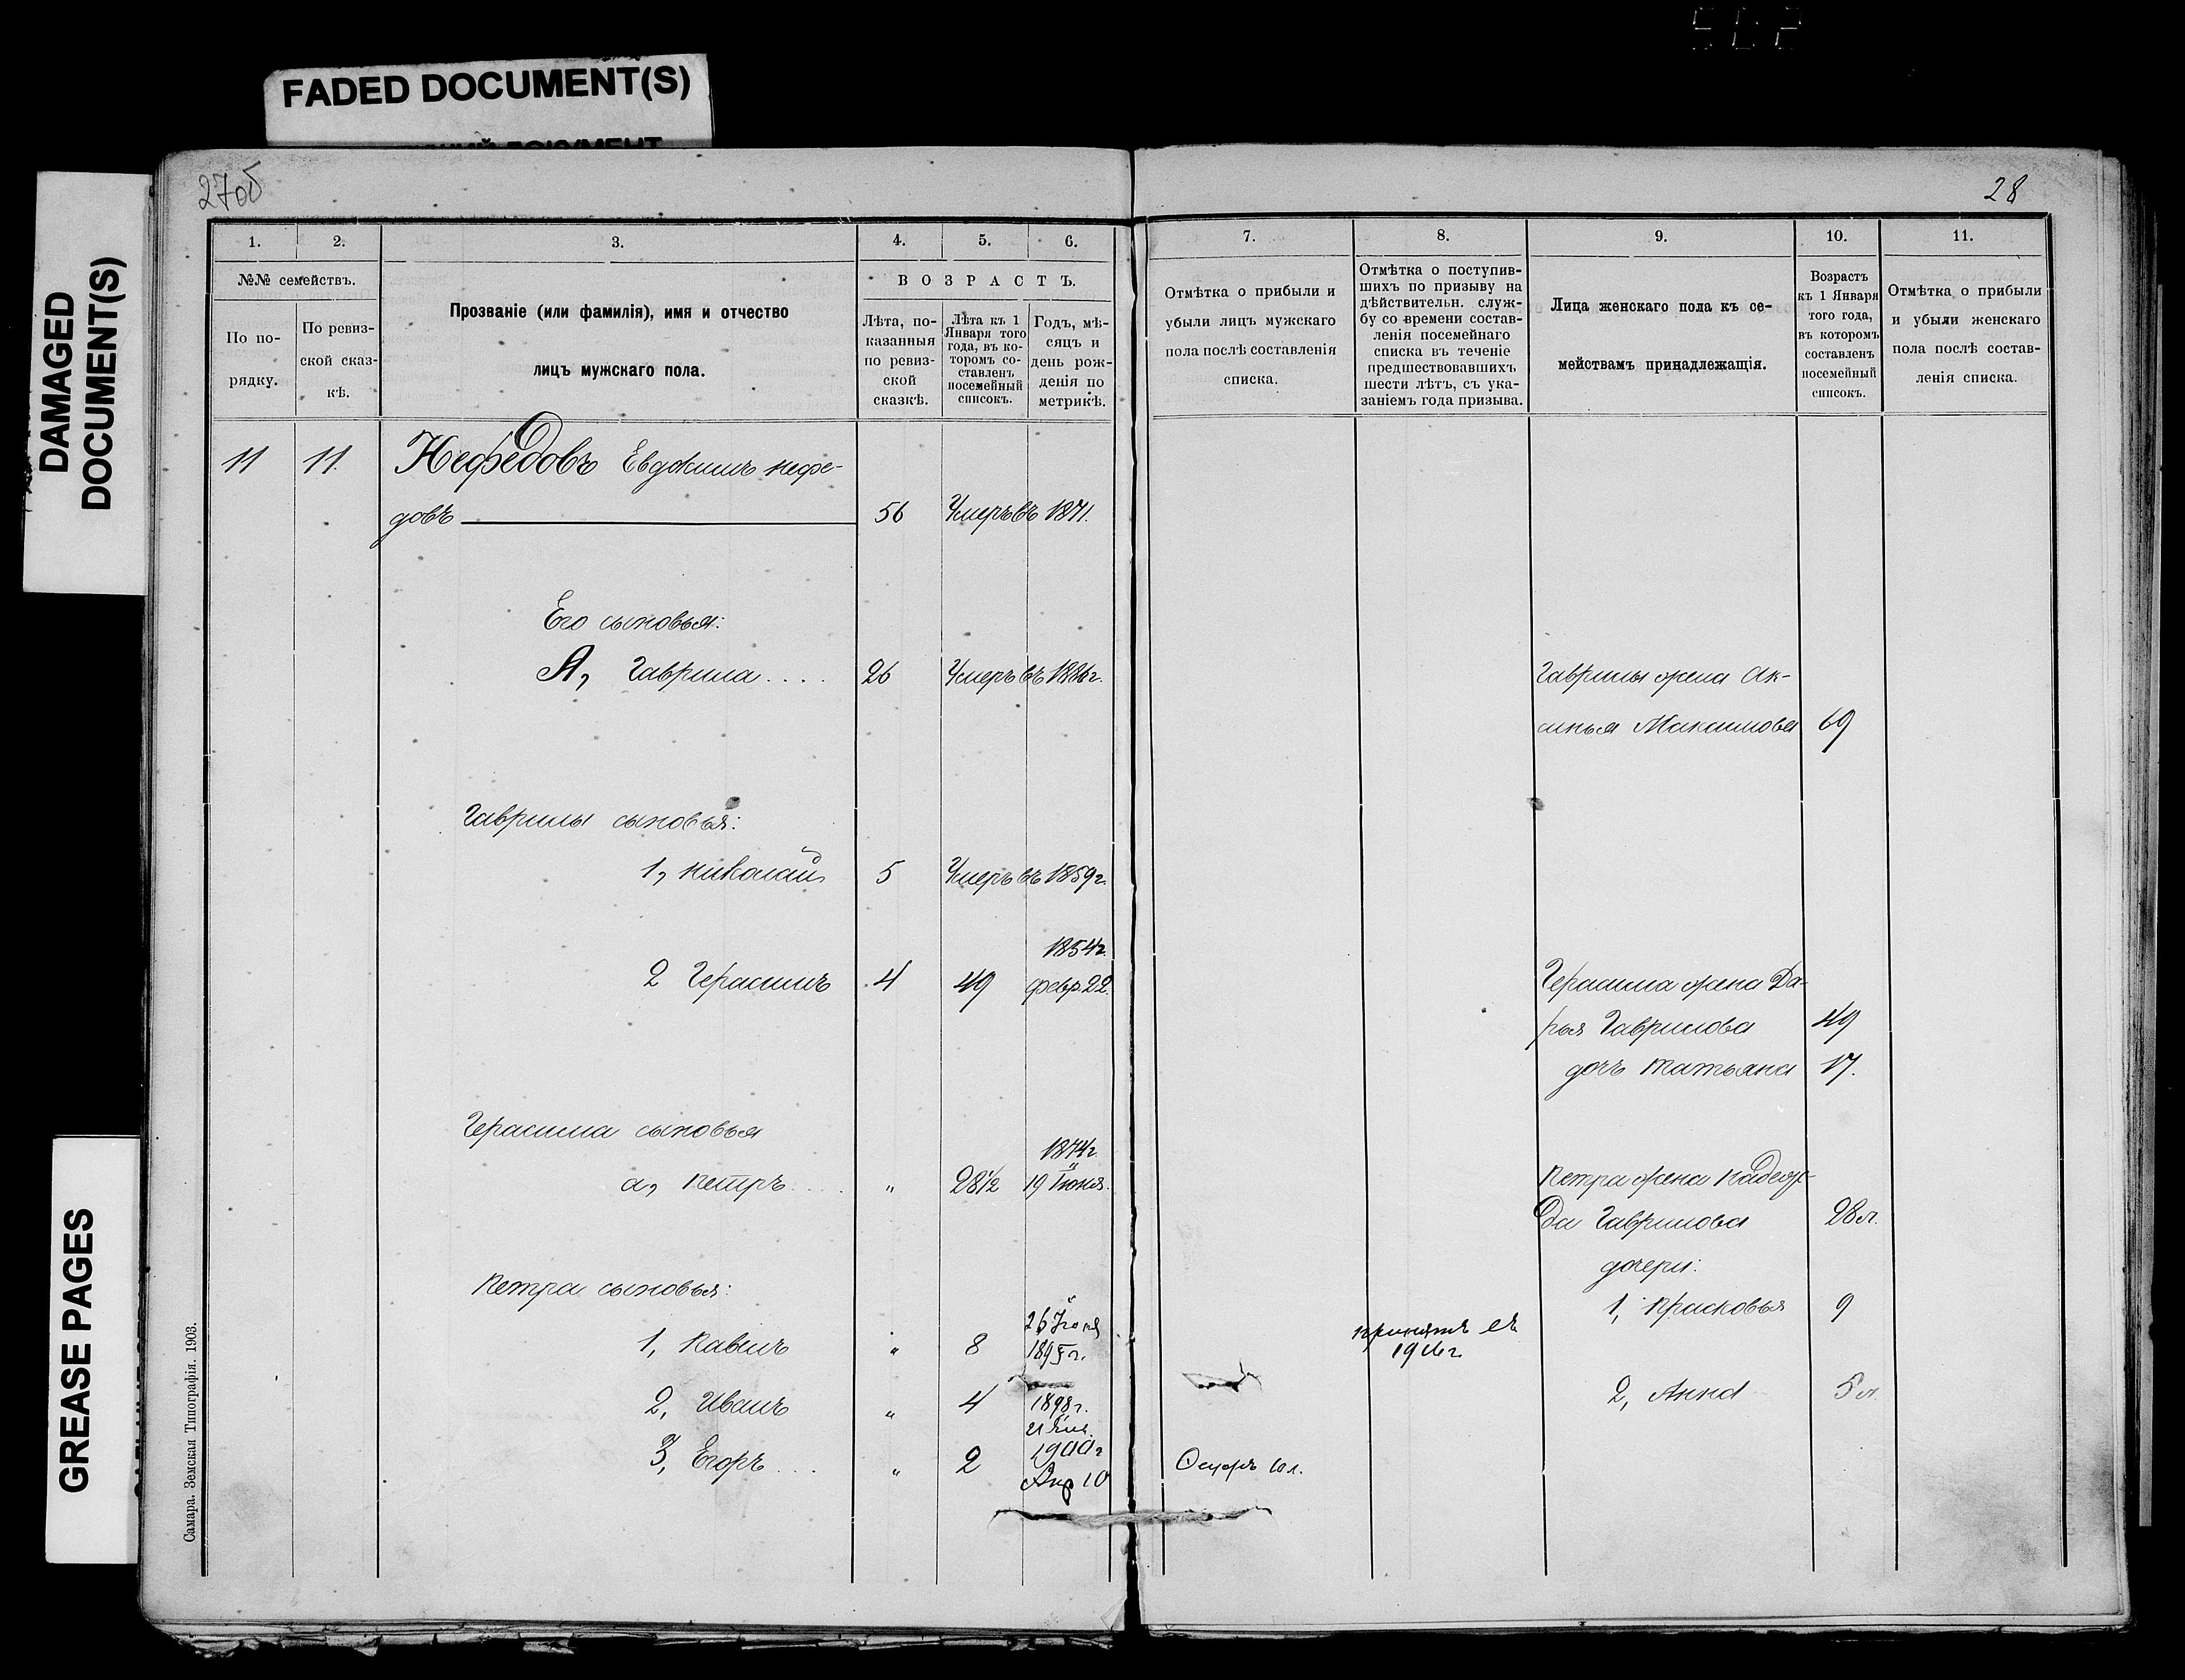 FADED DOCUMENT(S)
DAMAGED
DOCUMENT(S)
GREASE PAGES
27об
28
1.
2.
3.
4.
5.
6.
№№ семействъ.
По по-
рядку.
По ревиз-
ской сказ-
кѣ.
Прозваніе (или фамилія), имя и отчество
лицъ мужскаго пола.
ВОЗРАСТЪ.
Лѣта, по-
казанныя
по ревиз-
ской
сказкѣ.
Лѣта къ 1
Января того
года, въ ко-
торомъ со-
ставленъ
посемейный
списокъ.
Годъ, мѣ-
сяцъ и
день рож-
денія по
метрикѣ.
7.
8.
9.
10.
11.
Отмѣтка о прибыли и
убыли лицъ мужскаго
пола послѣ составленія
списка.
Отмѣтка о поступив-
шихъ по призыву на
дѣйствительн. служ-
бу со времени состав-
ленія посемейнаго
списка въ теченіе
предшествовавшихъ
шести лѣтъ, съ ука-
заніемъ года призыва.
Лица женскаго пола къ се-
мействамъ принадлежащія.
Возрастъ
къ 1 Января
того года,
въ которомъ
составленъ
посемейный
списокъ.
Отмѣтка о прибыли
и убыли женскаго
пола послѣ состав-
ленія списка.
11 11. Нефедовъ Евдокимъ Нефе-
довъ 56 Умеръ въ 1871.
Его сыновья:
А, Гаврила.... 26 Умеръ въ г.
Гаврилы жена Ак-
синья Максимова 69
Гаврилы сыновья:
1, Николай 5 Умеръ въ 1859г.
1854г.
2 Герасимъ 4 49 февр. 22.
Герасима жена Да-
рья Гаврилова 49
дочь Татьяна 17.
Герасима сыновья
1874г.
а, Петръ.... " 28½ 19 Іюня.
Петра жена Надеж-
да Гаврилова 28 л.
дочери:
Петра сыновья:
1, Прасковья 9
26
1, Павелъ " 8 189 г.
принятъ въ
19 г.
2, Иванъ " 4 1898г.
21
2, Анна 5 л.
3, Егоръ... " 2 1900г
Апр 10
Самара. Земская Типографія. 1903.